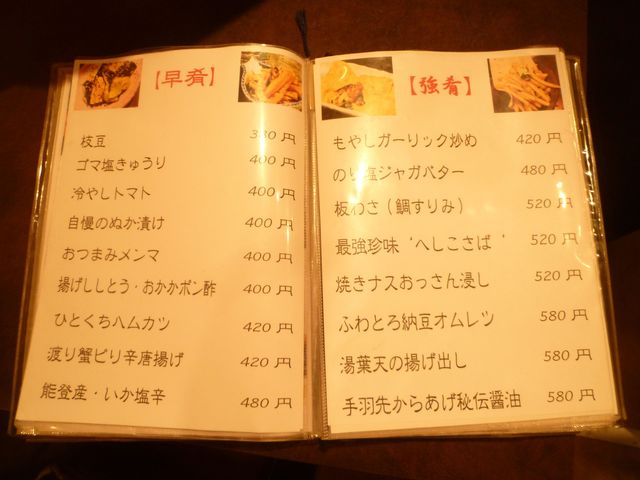 【早肴】
枝豆 380 円
ゴマ塩きゅうり 400 円
冷やしトマト 400 円
自慢のぬか漬け 400 円
おつまみメンマ 400 円
揚げししとう・おかかポン酢 400 円
ひとくちハムカツ 420 円
渡り蟹ピリ辛唐揚げ 420 円
能登産・いか塩辛 480 円
【強肴】
もやしガーリック炒め 420 円
のり塩ジャガバター 480 円
板わさ（鯛すりみ） 520 円
最強珍味‘へしこさば‘ 520 円
焼きナスおっさん浸し 520 円
ふわとろ納豆オムレツ 580 円
湯葉天の揚げ出し 580 円
手羽先からあげ秘伝醤油 580 円